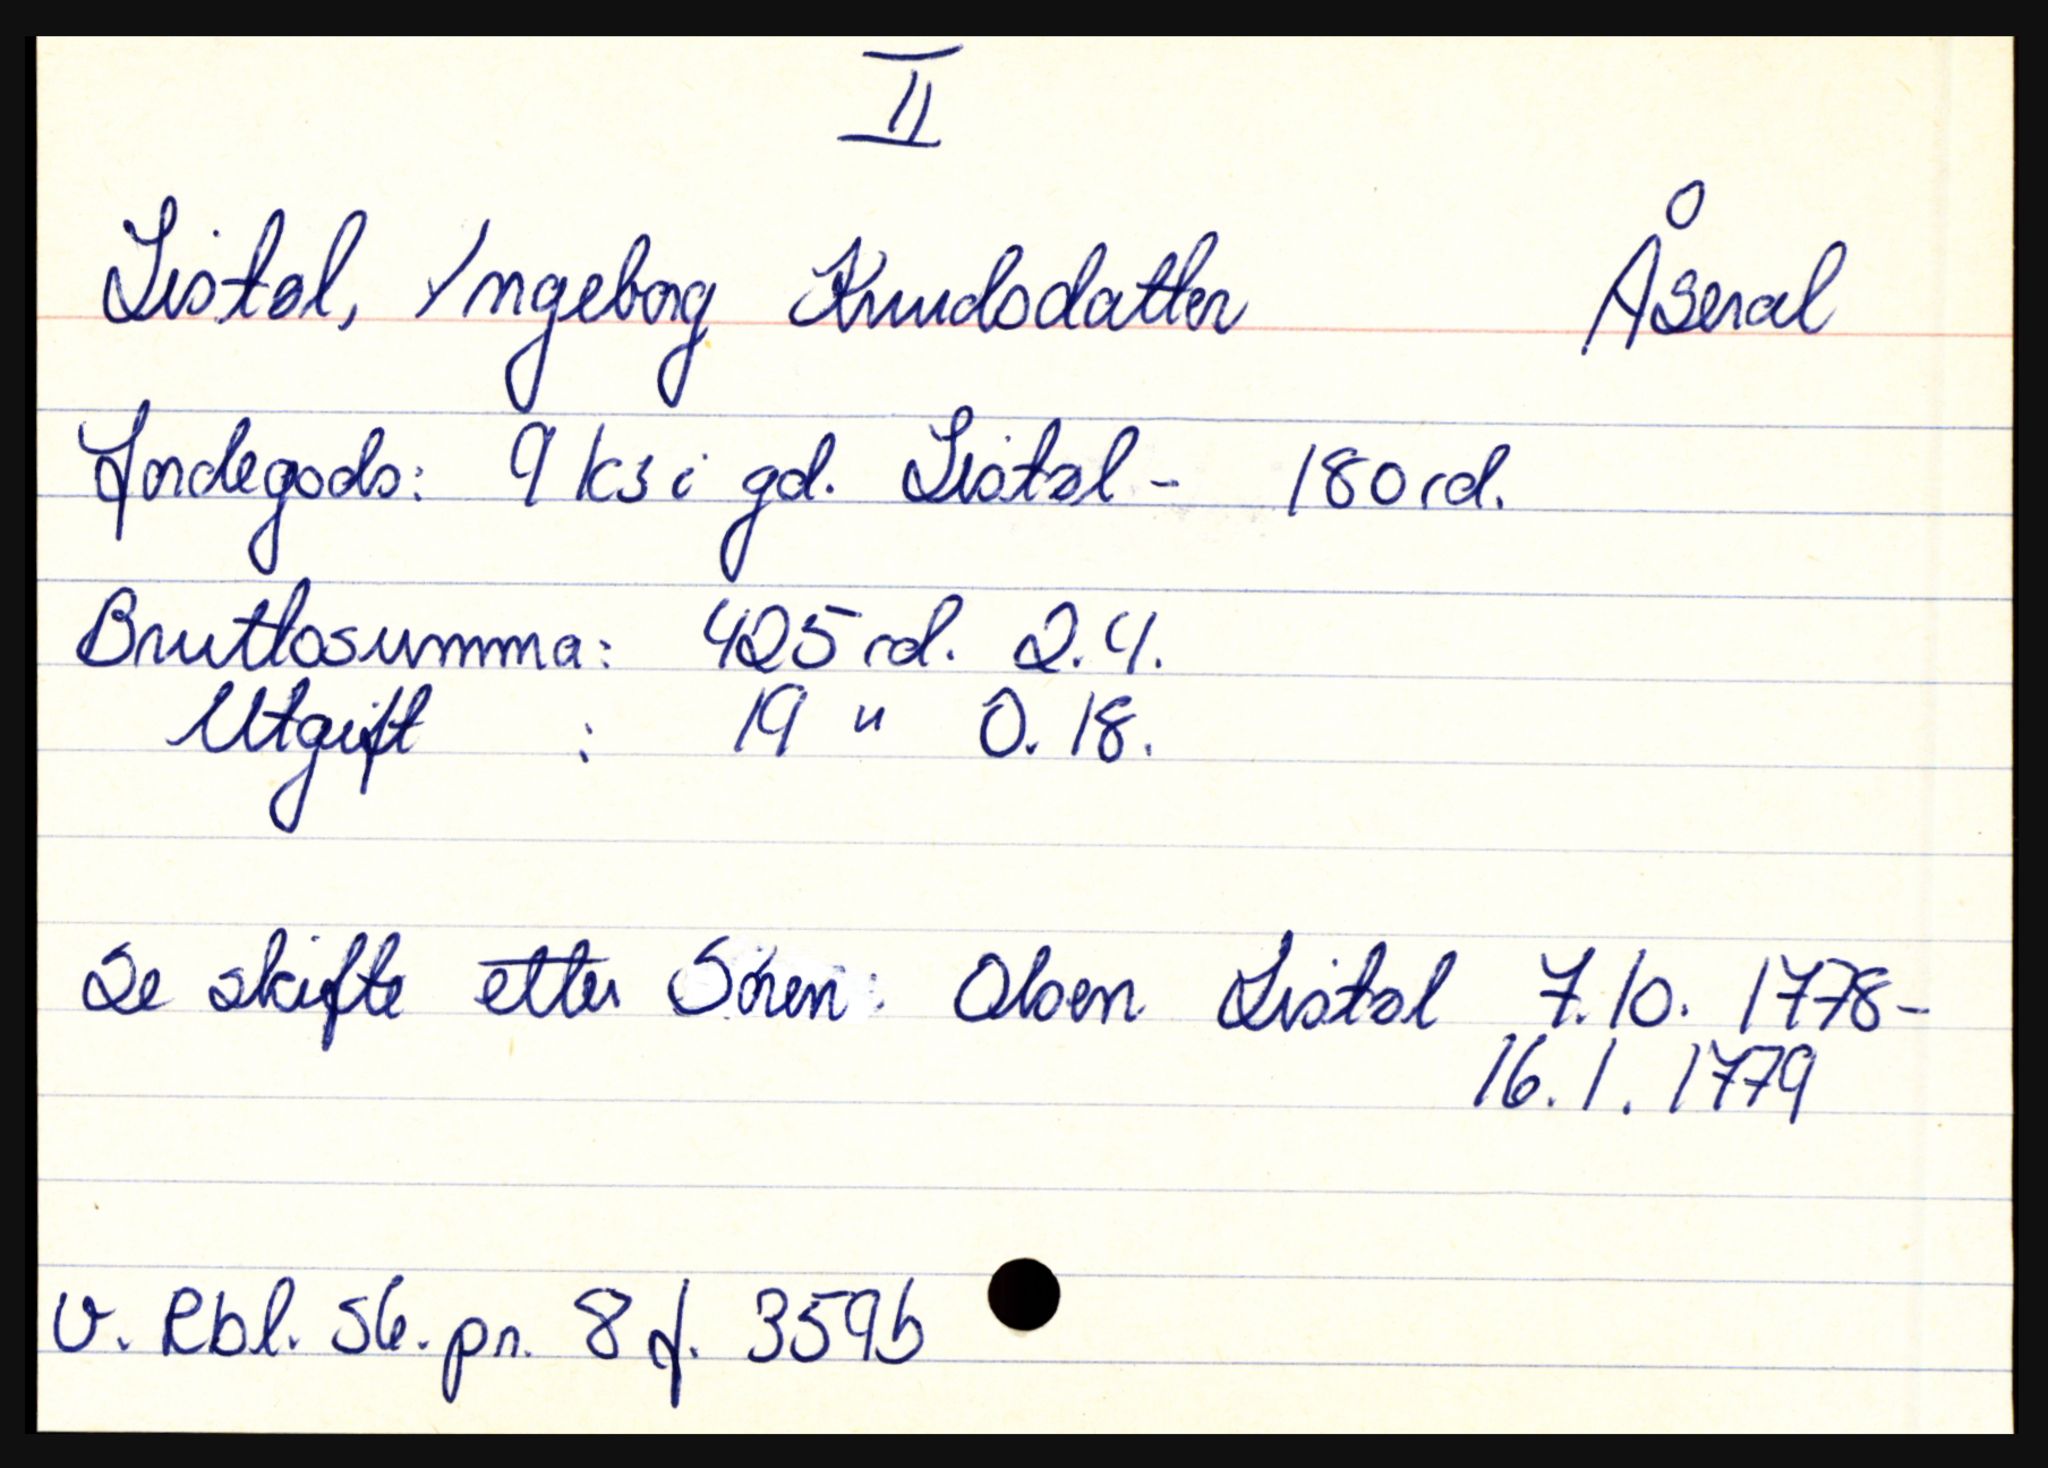 II
Listøl, Ingeborg Knudsdatter Åseral
Jordegods: 9 ks i gd. Listøl - 180 rd.
Bruttosumma: 425 rd. 2.4.
Utgift : 19 " 0.18.
Se skifte etter Sören Olsen Listøl 7.10.1778-
16.1.1779
v. Rbl. S6. pr. 8 f. 359b